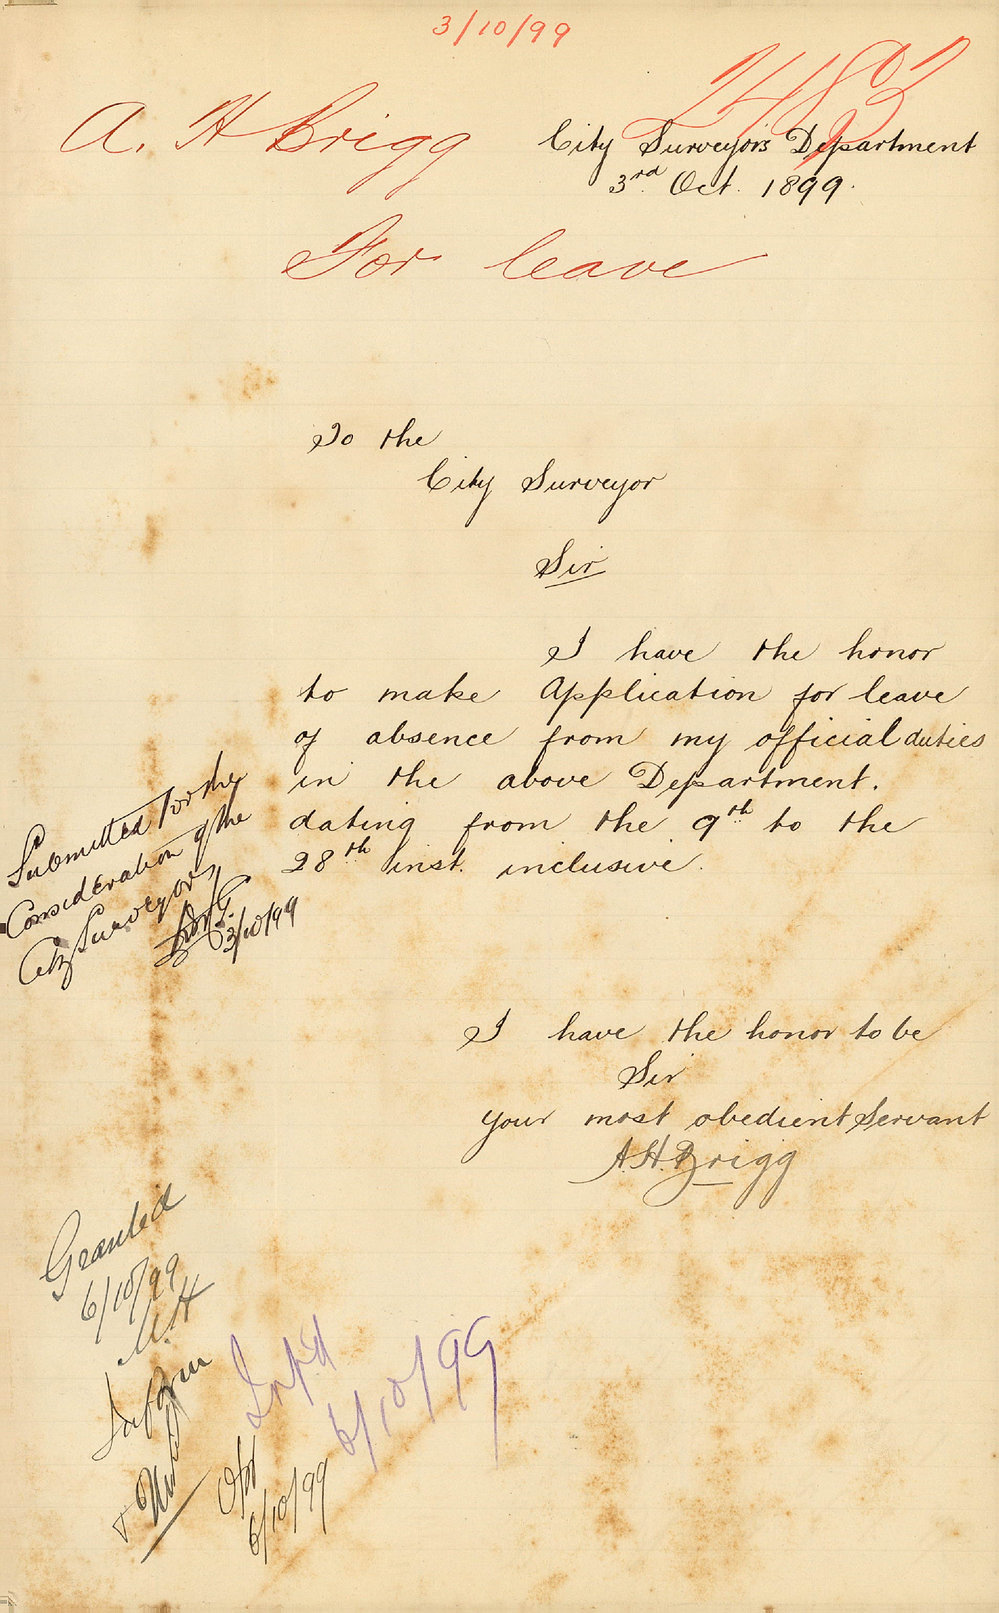 3/10/99
A. H Brigg
City Surveyor's Department
3rd Oct. 1899.
For leave
To the
City Surveyor
Sir
I have the honor
to make Application for leave
of absence from my official duties
in the above Department.
dating from the 9th to the
28th inst. inclusive.
Submitted for the
Consideration of the
City Surveyor
3/10/99
I have the honor to be
Sir
your most obedient Servant
A.H. Brigg
Granted
6/10/99
Inform
Inf'd
6/10/99
6/10/99